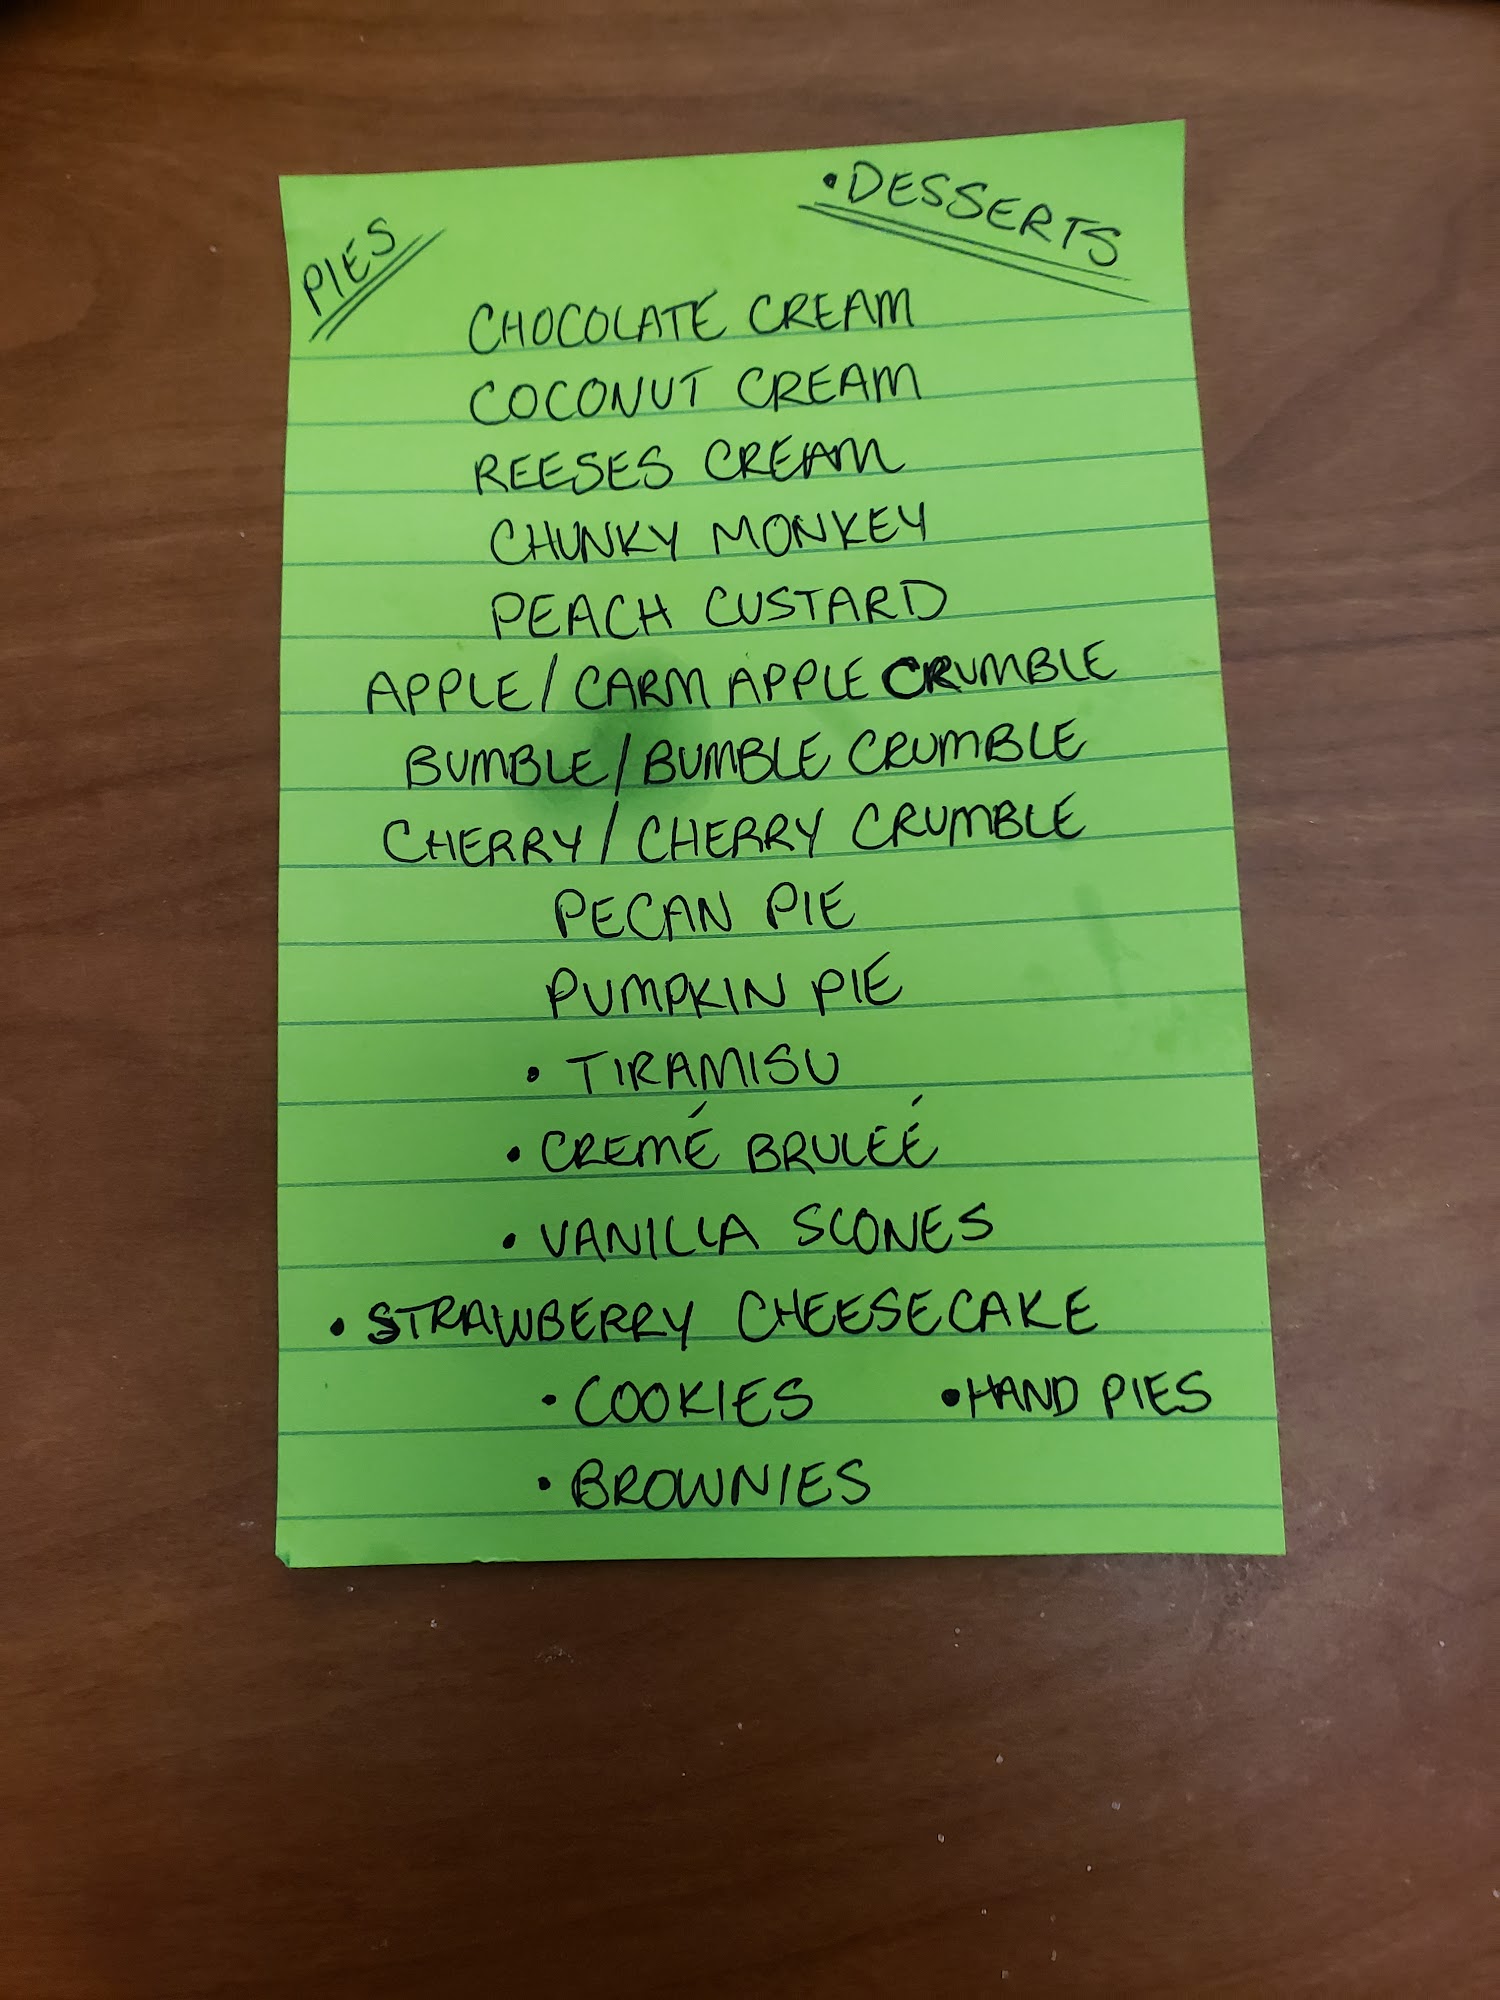 PIES
•DESSERTS
CHOCOLATE CREAM
COCONUT CREAM
REESES CREAM
CHUNKY MONKEY
PEACH CUSTARD
APPLE / CARM APPLE CRUMBLE
BUMBLE / BUMBLE CRUMBLE
CHERRY / CHERRY CRUMBLE
PECAN PIE
PUMPKIN PIE
• TIRAMISU
• CREMÉ BRULEÉ
• VANILLA SCONES
• STRAWBERRY CHEESECAKE
• COOKIES •HAND PIES
• BROWNIES